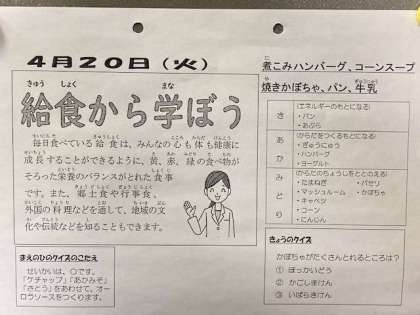 4月20日(火)
給食から学ぼう
毎日食べている給食は、みんなの心も体も健康に
成長することができるように、黄、赤、緑の食べ物が
そろった栄養のバランスがとれた食事
です。また、郷土食や行事食、
外国の料理などを通して、地域の文
化や伝統などを知ることもできます。
まえのひのクイズのこたえ
せいかいは、○です。
「ケチャップ」「あかみそ」
「さとう」をあわせて、オー
ロラソースをつくります。
煮こみハンバーグ、コーンスープ
焼きかぼちゃ、パン、牛乳
き
(エネルギーのもとになる)
・パン
・あぶら
あか
(からだをつくるもとになる)
・ぎゅうにゅう
・ハンバーグ
・ヨーグルト
みどり
(からだのちょうしをととのえる)
・たまねぎ ・パセリ
・マッシュルーム ・かぼちゃ
・キャベツ
・コーン
・にんじん
きょうのクイズ
かぼちゃがたくさんとれるところは?
① ほっかいどう
② かごしまけん
③ いばらきけん